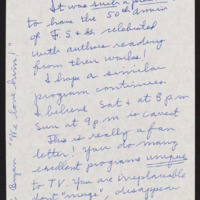 It was such a
to have the 50th anniv
of F. S. & G. celebrated
with authors reading
from their works!
I hope a similar
program continues
I believe Sat & at 8 pm
Sun at 9 p.m. is
This is really a fan
letter! You do many
excellent programs unique
to TV. You are irreplaceable
don't "merge", disappear
"We love him!"